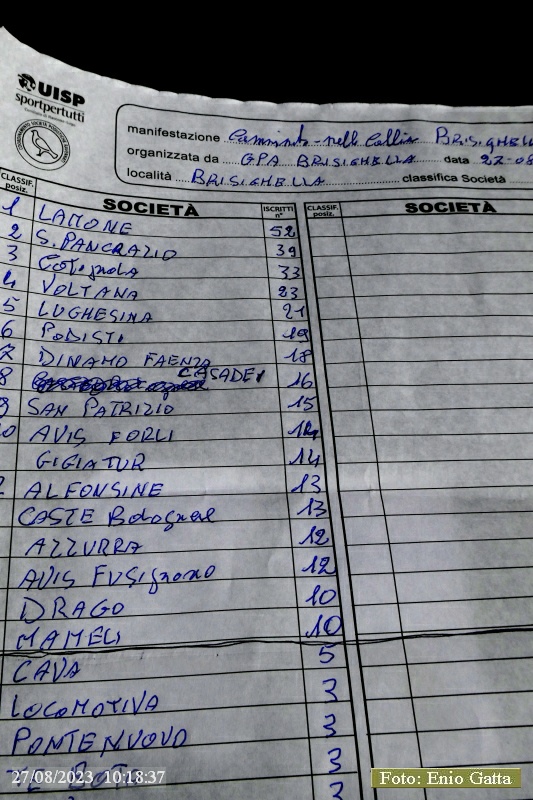 UISP
sportpertutti
manifestazione Camminata nelle Colline BRISIGHELL
organizzata da GPA BRISIGHELLA data 27-08
località BRISIGHELLA classifica Società
CLASSIF. posiz. SOCIETÀ ISCRITTI n° CLASSIF. posiz. SOCIETÀ
1 LAMONE 52
2 S. PANCRAZIO 39
3 Cotignola 33
4 VOLTANA 23
5 LUGHESINA 21
6 PODISTI 19
7 DINAMO FAENZA 18
8 CASADEI 16
9 SAN PATRIZIO 15
10 AVIS FORLI 14
GIGIATUR 14
2 ALFONSINE 13
CASTE Bolognese 13
AZZURRA 12
AVIS FUSignano 12
DRAGO 10
MAMELI 10
CAVA 5
LOCOMOTIVA 3
PONTENUOVO 3
3
3
27/08/2023 10:18:37
Foto: Enio Gatta